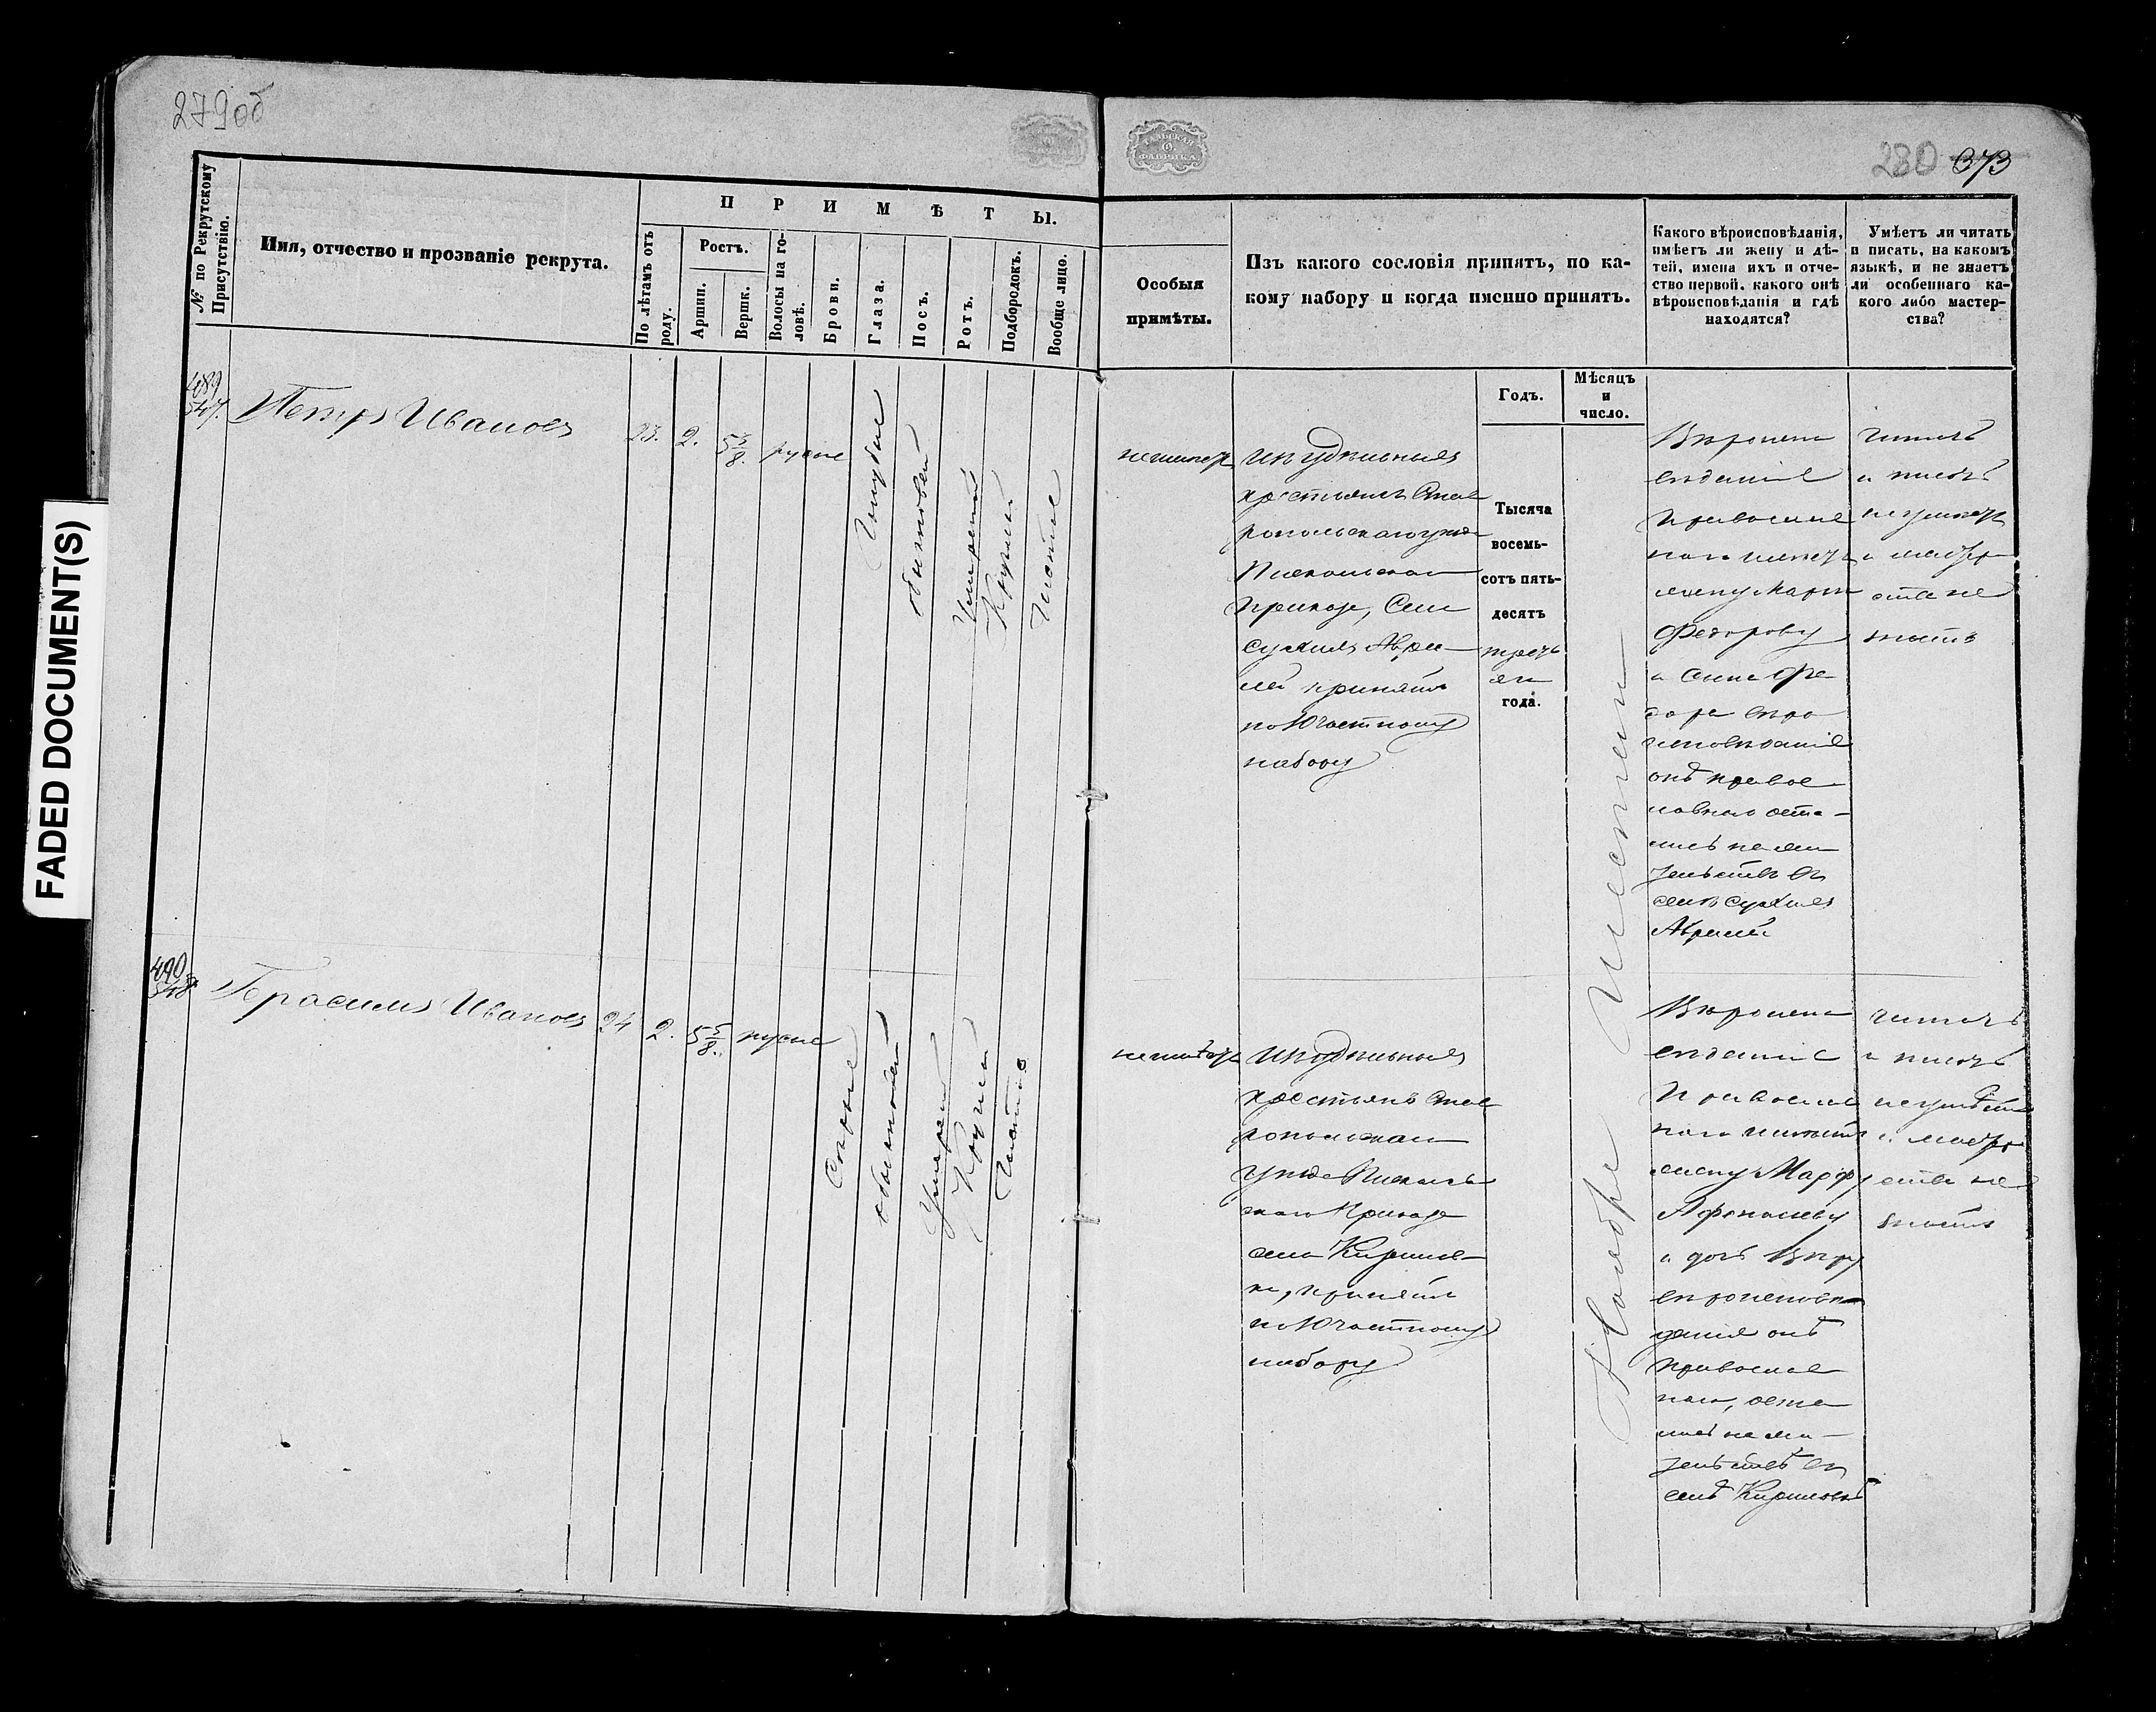 279об
ТАЛЬСКАЯ
ФАБРИКА
280 373
FADED DOCUMENT(S)
№ по Рекрутскому
Присутствію.
Имя, отчество и прозваніе рекрута.
П Р И М Ѣ Т Ы.
По лѣтамъ отъ
роду.
Ростъ.
Аршин.
Вершк.
Волосы на го-
ловѣ.
Брови.
Глаза.
Носъ.
Ротъ.
Подбородокъ.
Вообще лицо.
Особыя
примѣты.
Изъ какого сословія принятъ, по ка-
кому набору и когда именно принятъ.
Годъ.
Мѣсяцъ
и
число.
Какого вѣроисповѣданія,
имѣетъ ли жену и дѣ-
тей, имена ихъ и отче-
ство первой, какого онѣ
вѣроисповѣданія и гдѣ
находятся?
Умѣетъ ли читать
и писать, на какомъ
языкѣ, и не знаетъ
ли особеннаго ка-
кого либо мастер-
ства?
489
547.
Петръ Ивановъ
23. 2. 5 5/8. русые
Голубые
обыкновен
Умѣрен
Круглый
Чистое
неимеетъ
изъ удѣльныхъ
крестьянъ Став
ропольскаго уѣз
Приказа, Села
Сускихъ
принятъ
по 10 частному
набору
Тысяча
восемь-
сотъ пять-
десятъ
треть
яго
года.
Ноября Шестаго
Вѣроиспо
веданія
Православ
наго имѣетъ
жену
Федорову
и сына Фе
дора вѣро
исповѣданія
онѣ правос
лавнаго оста-
лись на жи
тельствѣ въ
селѣ
читать
и писать
неумѣетъ
и мастер
ства не
знаетъ
490
548
Герасимъ Ивановъ
24 2. 5 5/8. русые
Сѣрые
обыкновен
Умѣрен
Кругл
Чистое
неимѣетъ
изъ удѣльныхъ
крестьянъ Став
ропольскаго
уѣзда
скаго Приказа
села Кирилов-
ки, принятъ
по 10 частному
набору
Вѣроиспо
веданія
Православ
наго имѣетъ
жену Марфу
Афонасьеву
и дочь Вѣру
вѣроисповѣ
данія онѣ
православ
наго, оста
лись на жи-
тельствѣ въ
селѣ Кириловкѣ
читать
и писать
неумѣетъ
и мастер
ства не
знаетъ